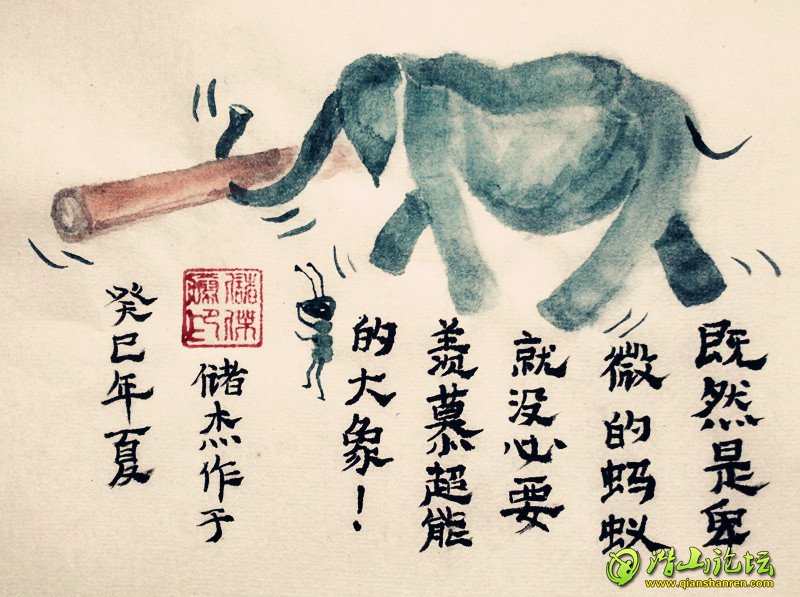 既然是卑
微的蚂蚁
就没必要
羡慕超能
的大象！
储杰作于
癸巳年夏
潜山论坛
www.qianshanren.com